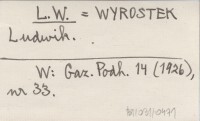 L.W. = WYROSTEK
Ludwik.
W: Gaz. Podh. 14 (1926),
nr 33.